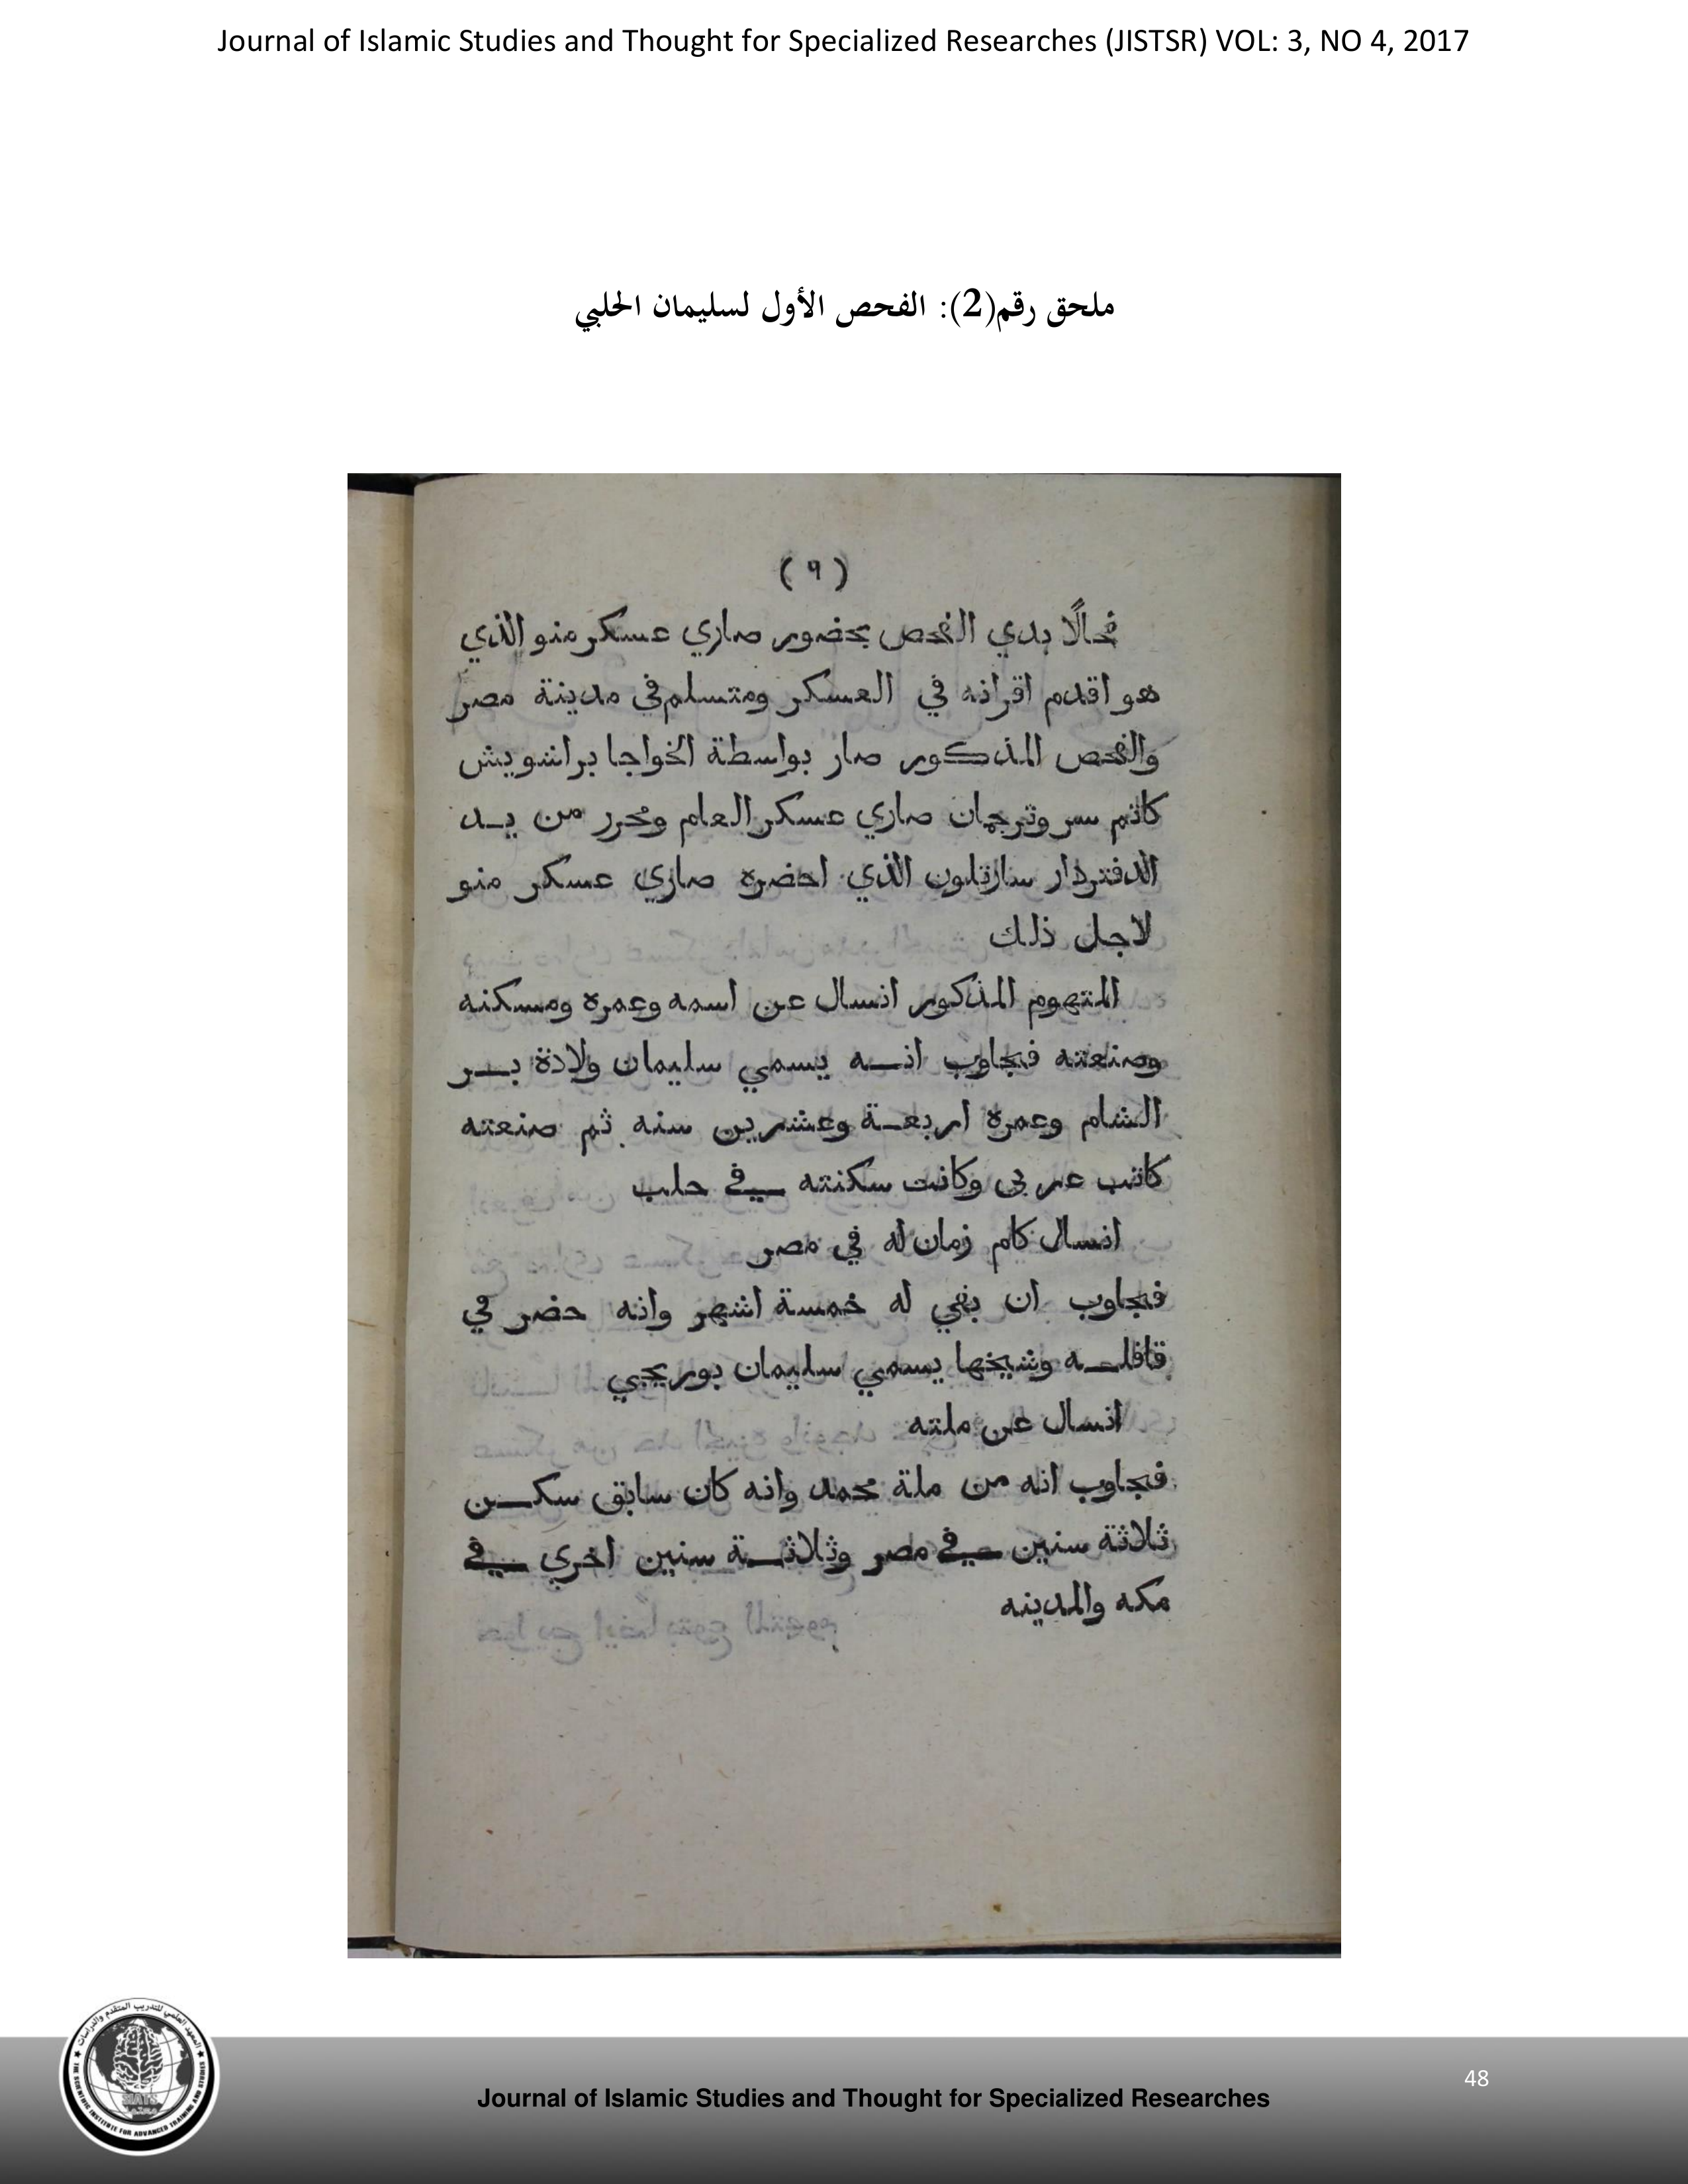 Journal of Islamic Studies and Thought for Specialized Researches (JISTSR) VOL: 3, NO 4, 2017
ملحق رقم(2): الفحص الأول لسليمان الحلبي
(٩)
فحالًا بدي الفحص بحضور صاري عسكر منو الذي
هو اقدم اقرانه في العسكر ومتسلم في مدينة مصر
والفحص المذكور صار بواسطة الخواجا براشويش
كاتم سر وترجمان صاري عسكر العام ومحرر من يد
الدفتردار سارتلون الذي احضره صاري عسكر منو
لاجل ذلك
المتهوم المذكور انسال عن اسمه وعمره ومسكنه
وصنعته فجاوب انه يسمي سليمان ولادة بر
الشام وعمره اربعة وعشرين سنه ثم صنعته
كاتب عربى وكانت سكنته في حلب
انسال كام زمان له في مصر
فجاوب ان بقي له خمسة اشهر وانه حضر في
قافله وشيخها يسمي سليمان بوريجي
انسال عن ملته
فجاوب انه من ملة محمد وانه كان سابق سكن
ثلاثة سنين في مصر وثلاثة سنين اخري في
مكه والمدينه
المعهد العلمي للتدريب المتقدم والدراسات
SIATS
THE SCIENTIFIC INSTITUTE FOR ADVANCED TRAINING AND STUDIES
Journal of Islamic Studies and Thought for Specialized Researches
48